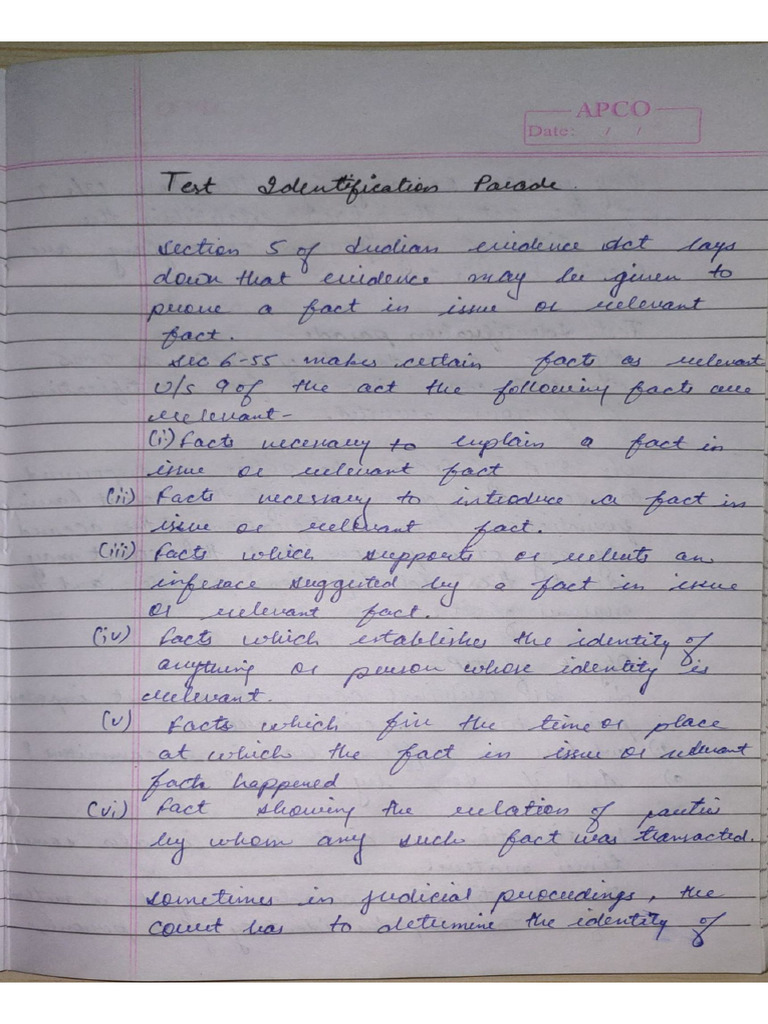 APCO
Date: / /
Test Identification Parade.
Section 5 of Indian evidence Act lays
down that evidence may be given to
prove a fact in issue or relevant
fact.
Sec 6-55 makes certain facts as relevant
U/s 9 of the act the following facts are
relevant-
(i) Facts necessary to explain a fact in
issue or relevant fact
(ii) Facts necessary to introduce a fact in
issue or relevant fact.
(iii) Facts which supports or rebuts an
inferace suggested by a fact in issue
or relevant fact.
(iv) Facts which establishes the identity of
anything or person whose identity is
relevant.
(v) Facts which fix the time or place
at which the fact in issue or relevant
facts happened
(vi) Fact showing the relation of parties
by whom any such fact was transacted.
Sometimes in judicial proceedings, the
court has to determine the identity of